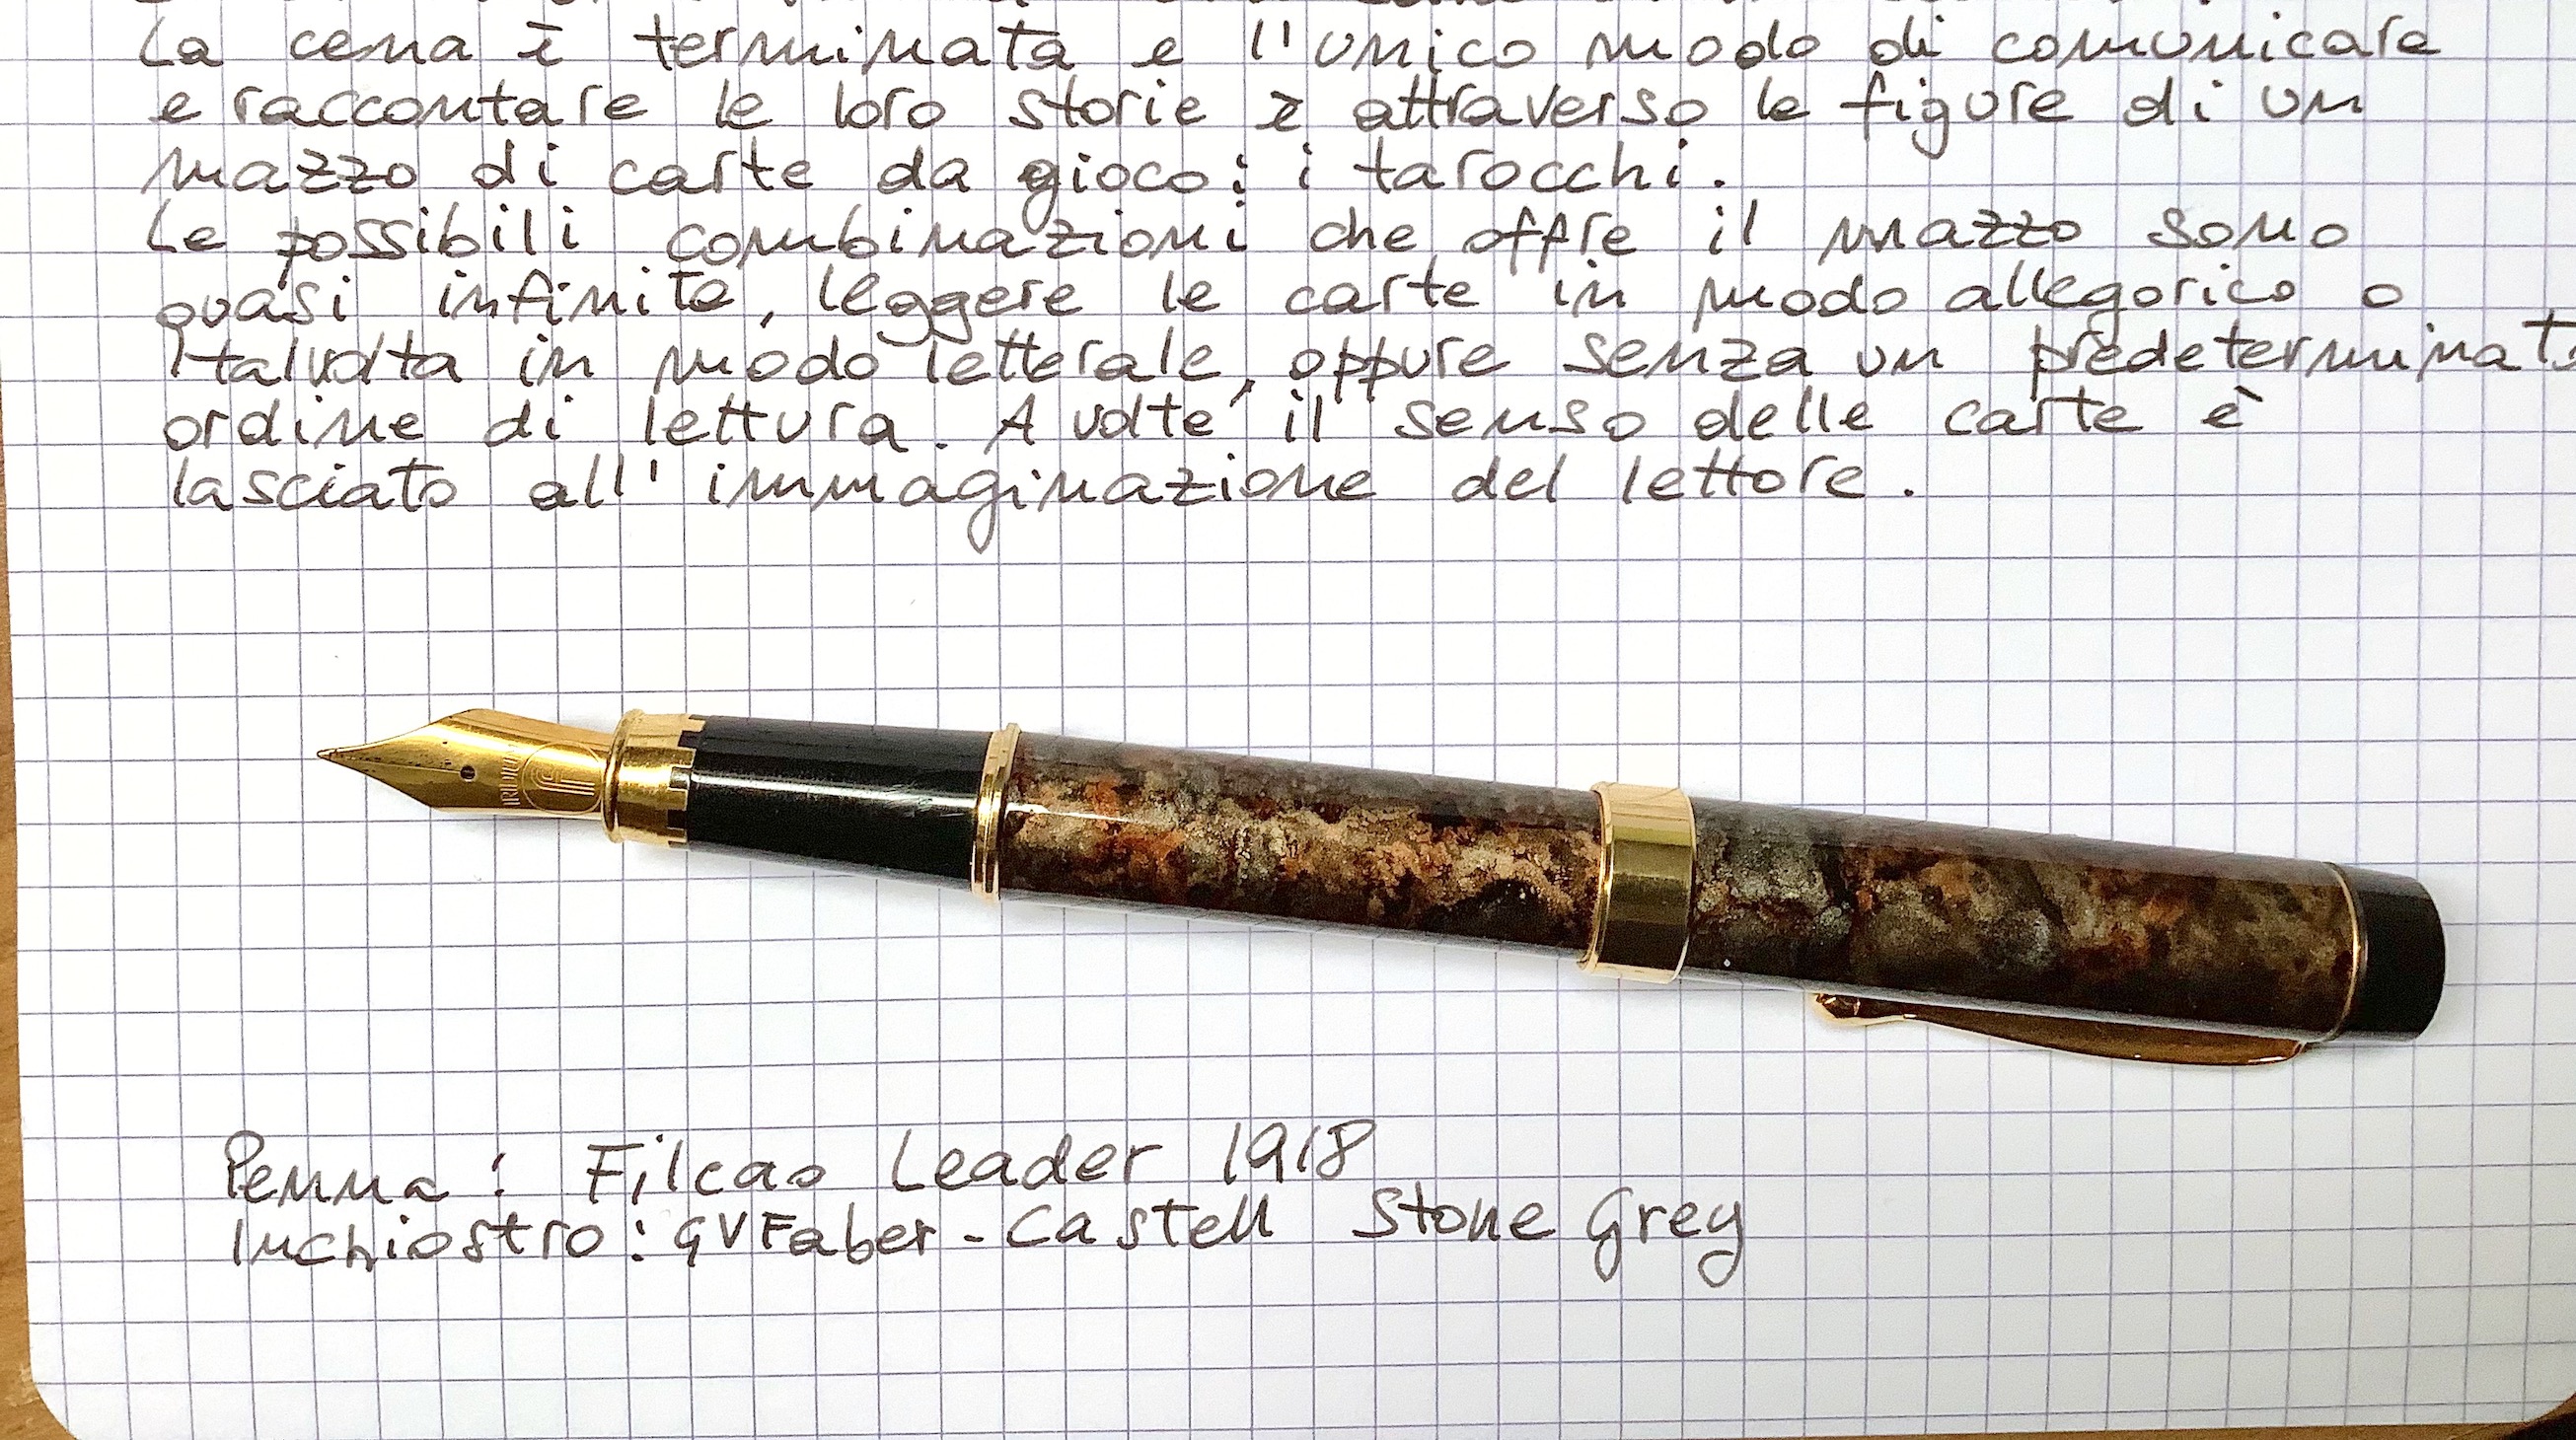 La cena è terminata e l'unico modo di comunicare
e raccontare le loro storie è attraverso le figure di un
mazzo di carte da gioco: i tarocchi.
Le possibili combinazioni che offre il mazzo sono
quasi infinite, leggere le carte in modo allegorico o
talvolta in modo letterale, oppure senza un predeterminato
ordine di lettura. A volte il senso delle carte è
lasciato all'immaginazione del lettore.
IRIDIUM
Penna: Filcao Leader 1918
Inchiostro: GVFaber-Castell Stone Grey